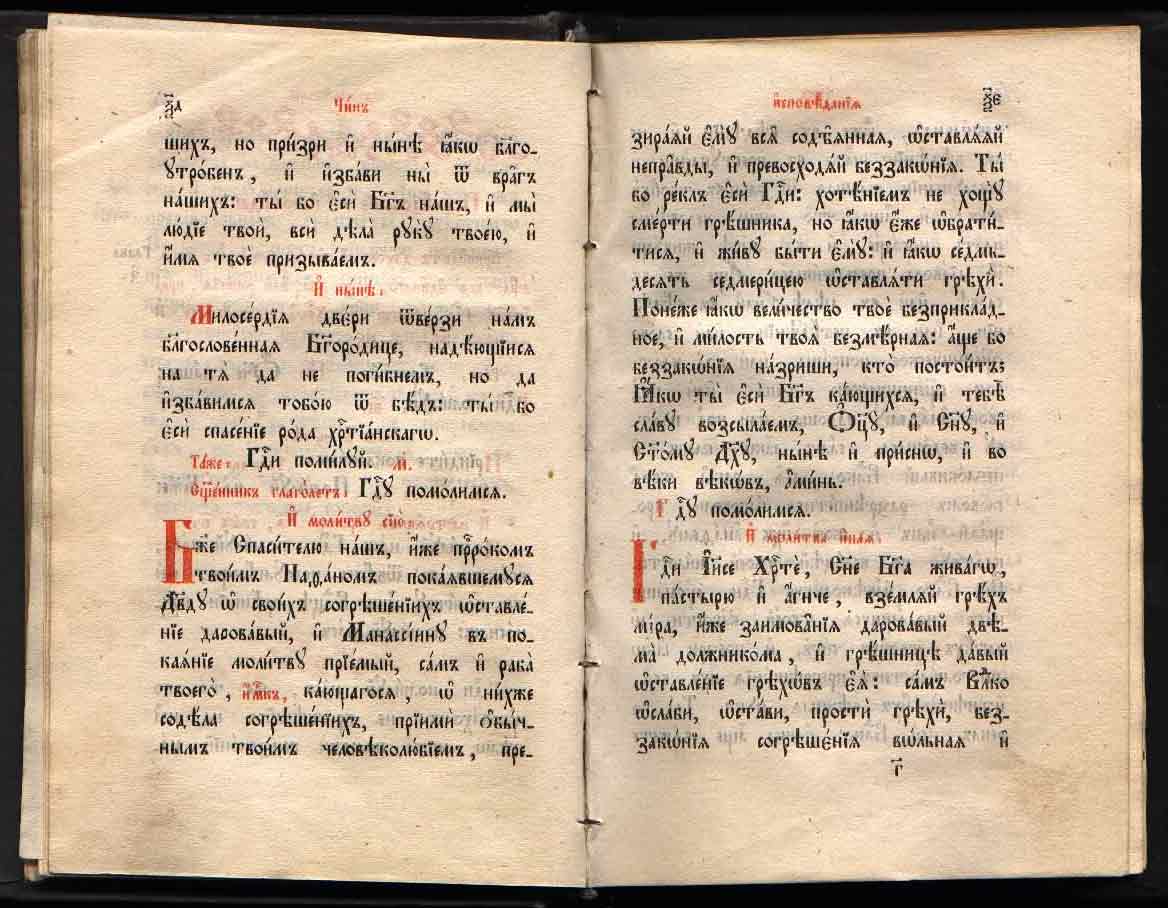 Чи́нъ
щихъ, но при́зри и҆ ны́нѣ ꙗ҆́кѡ бл҃го-
ꙋтро́бенъ, и҆ и҆зба́ви ны̀ ѿ вра̑гъ
на́шихъ: ты́ бо є҆сѝ бг҃ъ на́шъ, и҆ мы̀
лю́дїе твоѝ, всѝ дѣла̀ рꙋкꙋ̀ твоє́ю, и҆
и҆́мѧ твоѐ призыва́емъ.
И҆ ны́нѣ:
Милосе́рдїѧ две́ри ѿве́рзи на́мъ
бл҃гослове́ннаѧ Бг҃оро́дице, надѣ́ющїисѧ
на тѧ̀ да не поги́бнемъ, но да
и҆зба́вимсѧ тобо́ю ѿ бѣ́дъ: ты́ бо
є҆сѝ спасе́нїе ро́да хрⷭ҇тїа́нскагѡ.
Та́же: Гдⷭ҇и поми́лꙋй. м҃.
Сщ҃е́нникъ глаго́летъ: Гдⷭ҇ꙋ помо́лимсѧ.
И҆ моли́твꙋ сїю̀
Бж҃е Спаси́телю на́шъ, и҆́же прⷪ҇ро́комъ
твои́мъ Наѳа́номъ пока́ѧвшемꙋсѧ
Дв҃дꙋ ѡ҆ свои́хъ согрѣше́нїихъ ѡ҆ставле́-
нїе дарова́вый, и҆ Манассі́инꙋ въ по-
каѧ́нїе моли́твꙋ прїе́мый, са́мъ и҆ раба̀
твоего̀, и҆́м҃къ, ка́ющагосѧ, ѡ҆ ни́хже
содѣ́ла согрѣше́нїихъ, прїимѝ ѻ҆бы́ч-
нымъ твои́мъ человѣколю́бїемъ, пре-
и҆сповѣ́данїѧ
зира́ѧй є҆мꙋ̀ всѧ̑ содѣ́ѧннаѧ, ѡ҆ставлѧ́ѧй
непра́вды, и҆ превосходѧ́й беззакѡ́нїѧ. Ты́
бо ре́клъ є҆сѝ Гдⷭ҇и: хотѣ́нїемъ не хощꙋ̀
сме́рти грѣ́шника, но ꙗ҆́кѡ є҆́же ѡ҆брати́-
тисѧ, и҆ жи́вꙋ бы́ти є҆мꙋ̀: и҆ ꙗ҆́кѡ се́дмь-
десѧтъ седмери́цею ѡ҆ставлѧ́ти грѣхѝ.
Поне́же ꙗ҆́кѡ вели́чество твоѐ безприкла́д-
ное, и҆ ми́лость твоѧ̀ безмѣ́рнаѧ: а҆́ще бо
беззакѡ́нїѧ на́зриши, кто̀ постои́тъ;
Ꙗ҆́кѡ ты̀ є҆сѝ Бг҃ъ ка́ющихсѧ, и҆ тебѣ̀
сла́вꙋ возсыла́емъ, Ѻ҆ц҃ꙋ̀, и҆ Сн҃ꙋ, и҆
Ст҃о́мꙋ Дх҃ꙋ, ны́нѣ и҆ при́снѡ, и҆ во
вѣ́ки вѣкѡ́въ, а҆ми́нь.
Гдⷭ҇ꙋ помо́лимсѧ.
И҆ моли́тва и҆на́ѧ:
Гдⷭ҇и І҆и҃се Хрⷭ҇тѐ, Сн҃е Бг҃а жива́гѡ,
па́стырю и҆ а҆́гнче, взе́млѧй грѣ́хъ
мі́ра, и҆́же заимова̑нїѧ дарова́вый двѣ-
ма̀ должнико́ма, и҆ грѣ́шницѣ да́вый
ѡ҆ставле́нїе грѣхѡ́въ є҆ѧ̀: са́мъ Влⷣко
ѡ҆сла́би, ѡ҆ста́ви, простѝ грѣхѝ, без-
закѡ́нїѧ согрѣшє́нїѧ вѡ́льнаѧ и҆
г҃